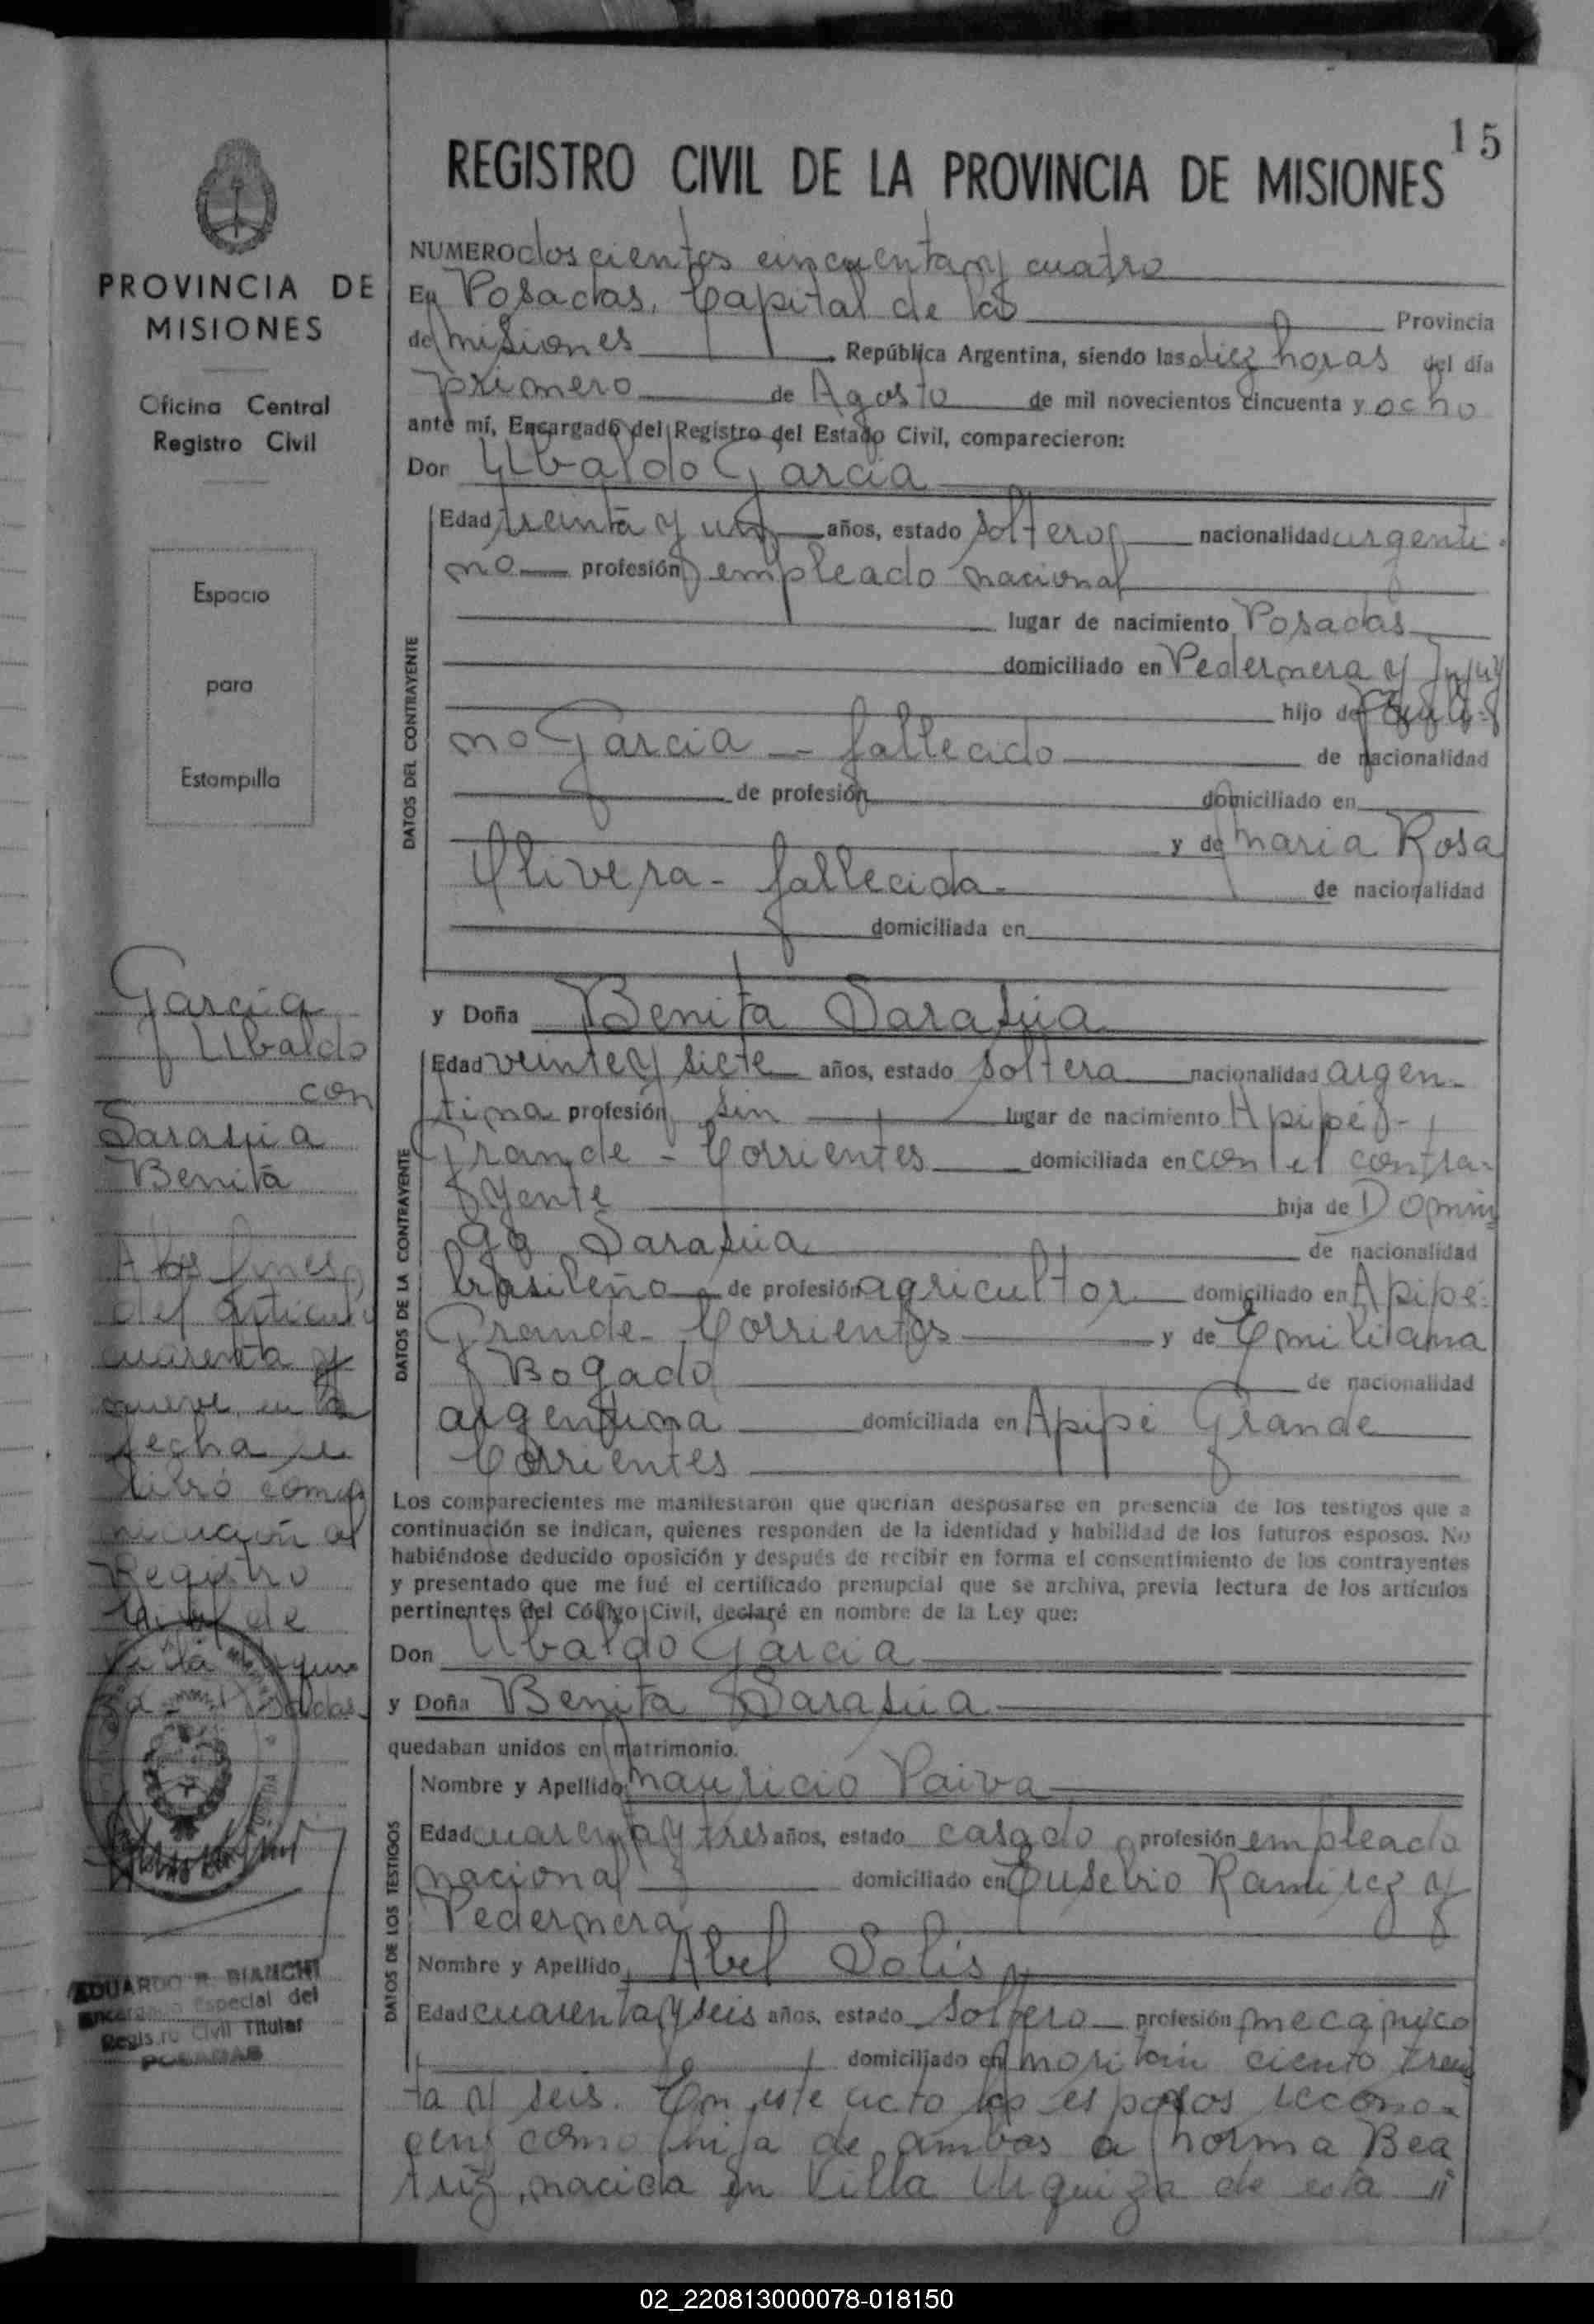 15
REGISTRO CIVIL DE LA PROVINCIA DE MISIONES
PROVINCIA DE
MISIONES
Oficina Central
Registro Civil
Espacio
para
Estampilla
García
Ubaldo
con
Sarasúa
Benita
A los fines
del artículo
cuarenta y
nueve, en la
fecha se
libró comu
nicación al
Registro
Civil de
Villa Urqui
za Posadas
EDUARDO R. BIANCHI
Encargado Especial del
Registro Civil Titular
POSADAS
NUMERO doscientos cincuenta y cuatro
En Posadas, Capital de la Provincia
de Misiones República Argentina, siendo las diez horas del día
primero de Agosto de mil novecientos cincuenta y ocho
ante mí, Encargado del Registro del Estado Civil, comparecieron:
Don Ubaldo García
DATOS DEL CONTRAYENTE
Edad treinta y un años, estado soltero nacionalidad argenti-
no profesión empleado nacional
lugar de nacimiento Posadas
domiciliado en Pedernera y Jujuy
hijo de
no García - fallecido de nacionalidad
de profesión domiciliado en
y de María Rosa
Olivera - fallecida - de nacionalidad
domiciliada en
y Doña Benita Sarasúa
DATOS DE LA CONTRAYENTE
Edad veinte y siete años, estado soltera nacionalidad argen-
tina profesión sin lugar de nacimiento Apipé -
Grande - Corrientes domiciliada en con el contra-
yente hija de Domin
go Sarasúa de nacionalidad
brasileño de profesión agricultor domiciliado en Apipé-
Grande - Corrientes y de Emiliana
Bogado de nacionalidad
argentina domiciliada en Apipé Grande
Corrientes
Los comparecientes me manifestaron que querían desposarse en presencia de los testigos que a
continuación se indican, quienes responden de la identidad y habilidad de los futuros esposos. No
habiéndose deducido oposición y después de recibir en forma el consentimiento de los contrayentes
y presentado que me fué el certificado prenupcial que se archiva, previa lectura de los artículos
pertinentes del Código Civil, declaré en nombre de la Ley que:
Don Ubaldo García
y Doña Benita Sarasúa
quedaban unidos en matrimonio.
DATOS DE LOS TESTIGOS
Nombre y Apellido Mauricio Paiva
Edad cuarenta y tres años, estado casado profesión empleado
nacional domiciliado en Eusebio Ramirez y
Pedernera
Nombre y Apellido Abel Solis
Edad cuarenta y seis años, estado soltero profesión mecánico
domiciliado en ciento trein
ta y seis. En este acto los esposos recono-
cen como hija de ambos a Norma Bea
triz, nacida en Villa Urquiza de esta "
02_220813000078-018150